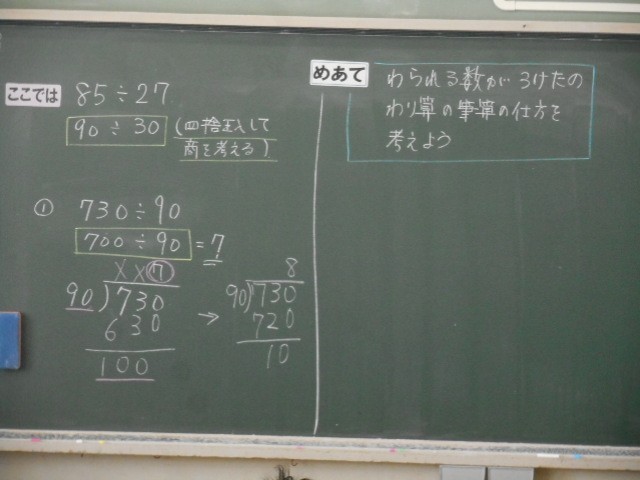 ここでは 85÷27
90÷30 (四捨五入して
商を考える)
① 730÷90
700÷90 = 7
X X 7
90)730
630
100
→
8
90)730
720
10
めあて わられる数が3けたの
わり算の筆算の仕方を
考えよう